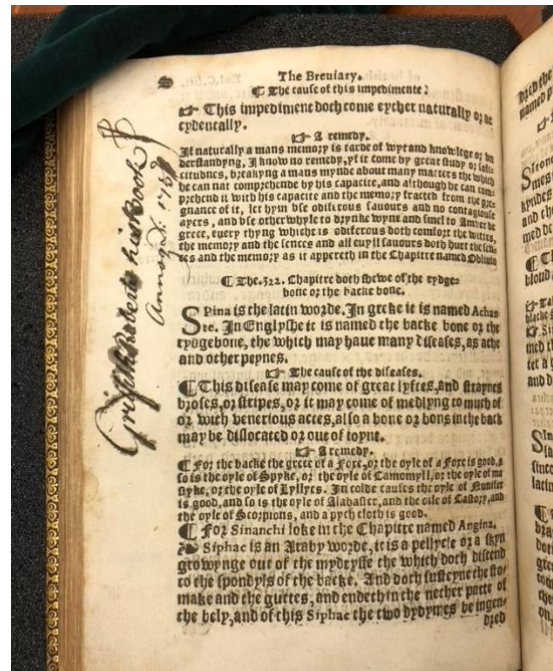 The Breuiary.
¶ The cause of this impedimente:
☞ This impediment doth come eyther naturally or ac
cydentally.
☞ A remedy.
If naturally a mans memory is tarde of wyt and knowlege or vn
derstandyng, I know no remedy, yf it come by great study or soli
citudnes, breakyng a mans mynde about many matters the which
he can nat comprehende by his capacite, and although he can com
prehend it with his capacite and the memory fracted from the
gnance of it, let hym vse odiferous sauours and no contagiouse
ayers, and vse otherwhyle to drynke wyne and smel to Amber de
grece, euery thyng whiche is odiferous doth comfort the wittes,
the memory and the sences and all euyll sauours doth hurt the sen
ces and the memory as it appereth in the Chapitre named Obliuio
¶ The .322. Chapitre doth shewe of the rydge-
bone or the backe bone.
SPina is the latin worde. In greke it is named Achan
te. In Englyshe it is named the backe bone or the
rydgebone, the which may haue many diseases, as ache
and other peynes.
☞ The cause of the diseases.
¶ This disease may come of great lyftes, and straynes
broses, or stripes, or it may come of medlyng to much of
or with venerious actes, also a bone or bons in the back
may be dislocated or out of ioynt.
☞ A remedy.
¶ For the backe the grece of a Foxe, or the oyle of a Foxe is good, &
so is the oyle of Spyke, or the oyle of Camomyll, or the oyle of
or the oyle of Lyllyes. In colde causes the oyle of
is good, and so is the oyle of Alabaster, and the oile of Castory, and
the oyle of Scorpions, and a pych cloth is good.
¶ For Sinanchi loke in the Chapitre named Angina.
Siphac is an Araby worde, it is a pellycle or a skyn
growynge out of the mydryffe the which doth discend
to the spondyls of the backe. And doth susteyne the sto
make and the guttes, and endeth in the nether parte of
the bely, and of this Siphac the two dydymes be ingen
dred
Griffith Roberts his Book